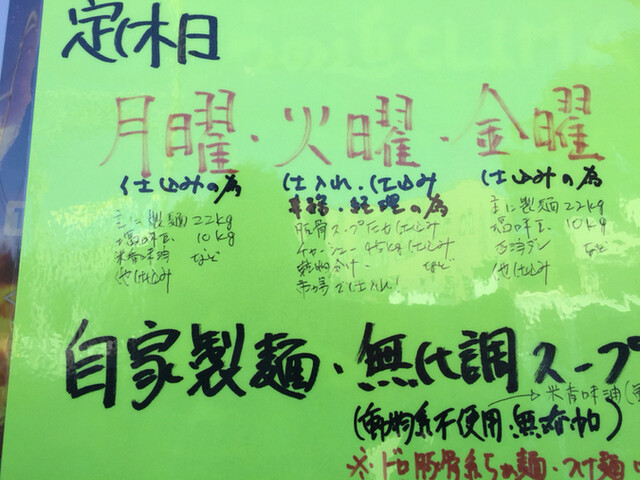 定休日
月曜・火曜・金曜
仕込みの為
仕入れ、仕込み
事務・経理の為
仕込みの為
主に製麺22kg
10kg
米香味油 など
他仕込み
豚骨スープ 仕込み
チャーシュー45kg仕込み
など
で仕入れ!
主に製麺22kg
10kg
など
他仕込み
自家製麺・無化調スープ
→米香味油(
(動物系不使用・無添加)
※ドロ豚骨系らぁ麺・つけ麺